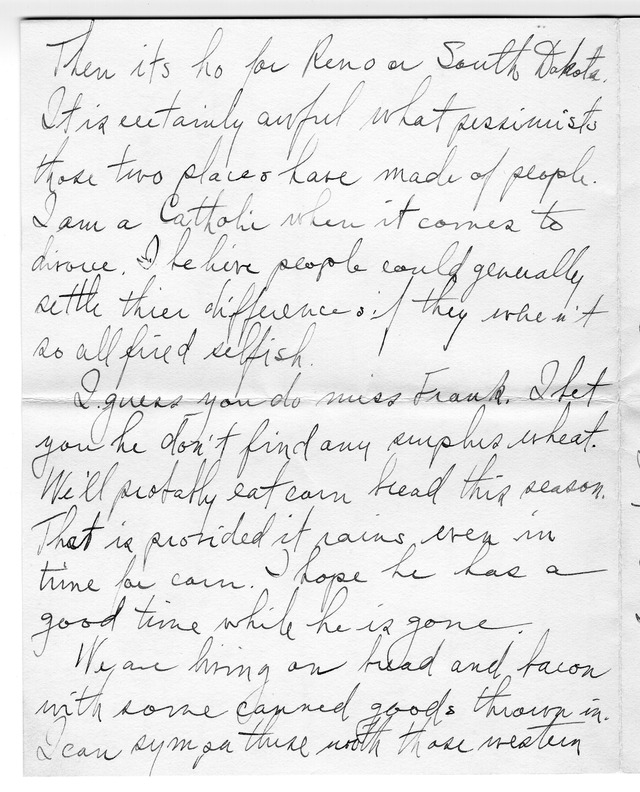 Then its ho for Reno or South Dakota.
It is certainly awful what pessimists
those two places have made of people.
I am a Catholic when it comes to
divorce. I believe people could generally
settle thier differences if they where'nt
so all fired selfish.
I guess you do miss Frank. I bet
you he don't find any surplus wheat.
We'll probably eat corn bread this season.
That is provided it rains even in
time for corn. I hope he has a
good time while he is gone.
We are living on bread and bacon
with some canned goods thrown in.
I can sympathise with those western